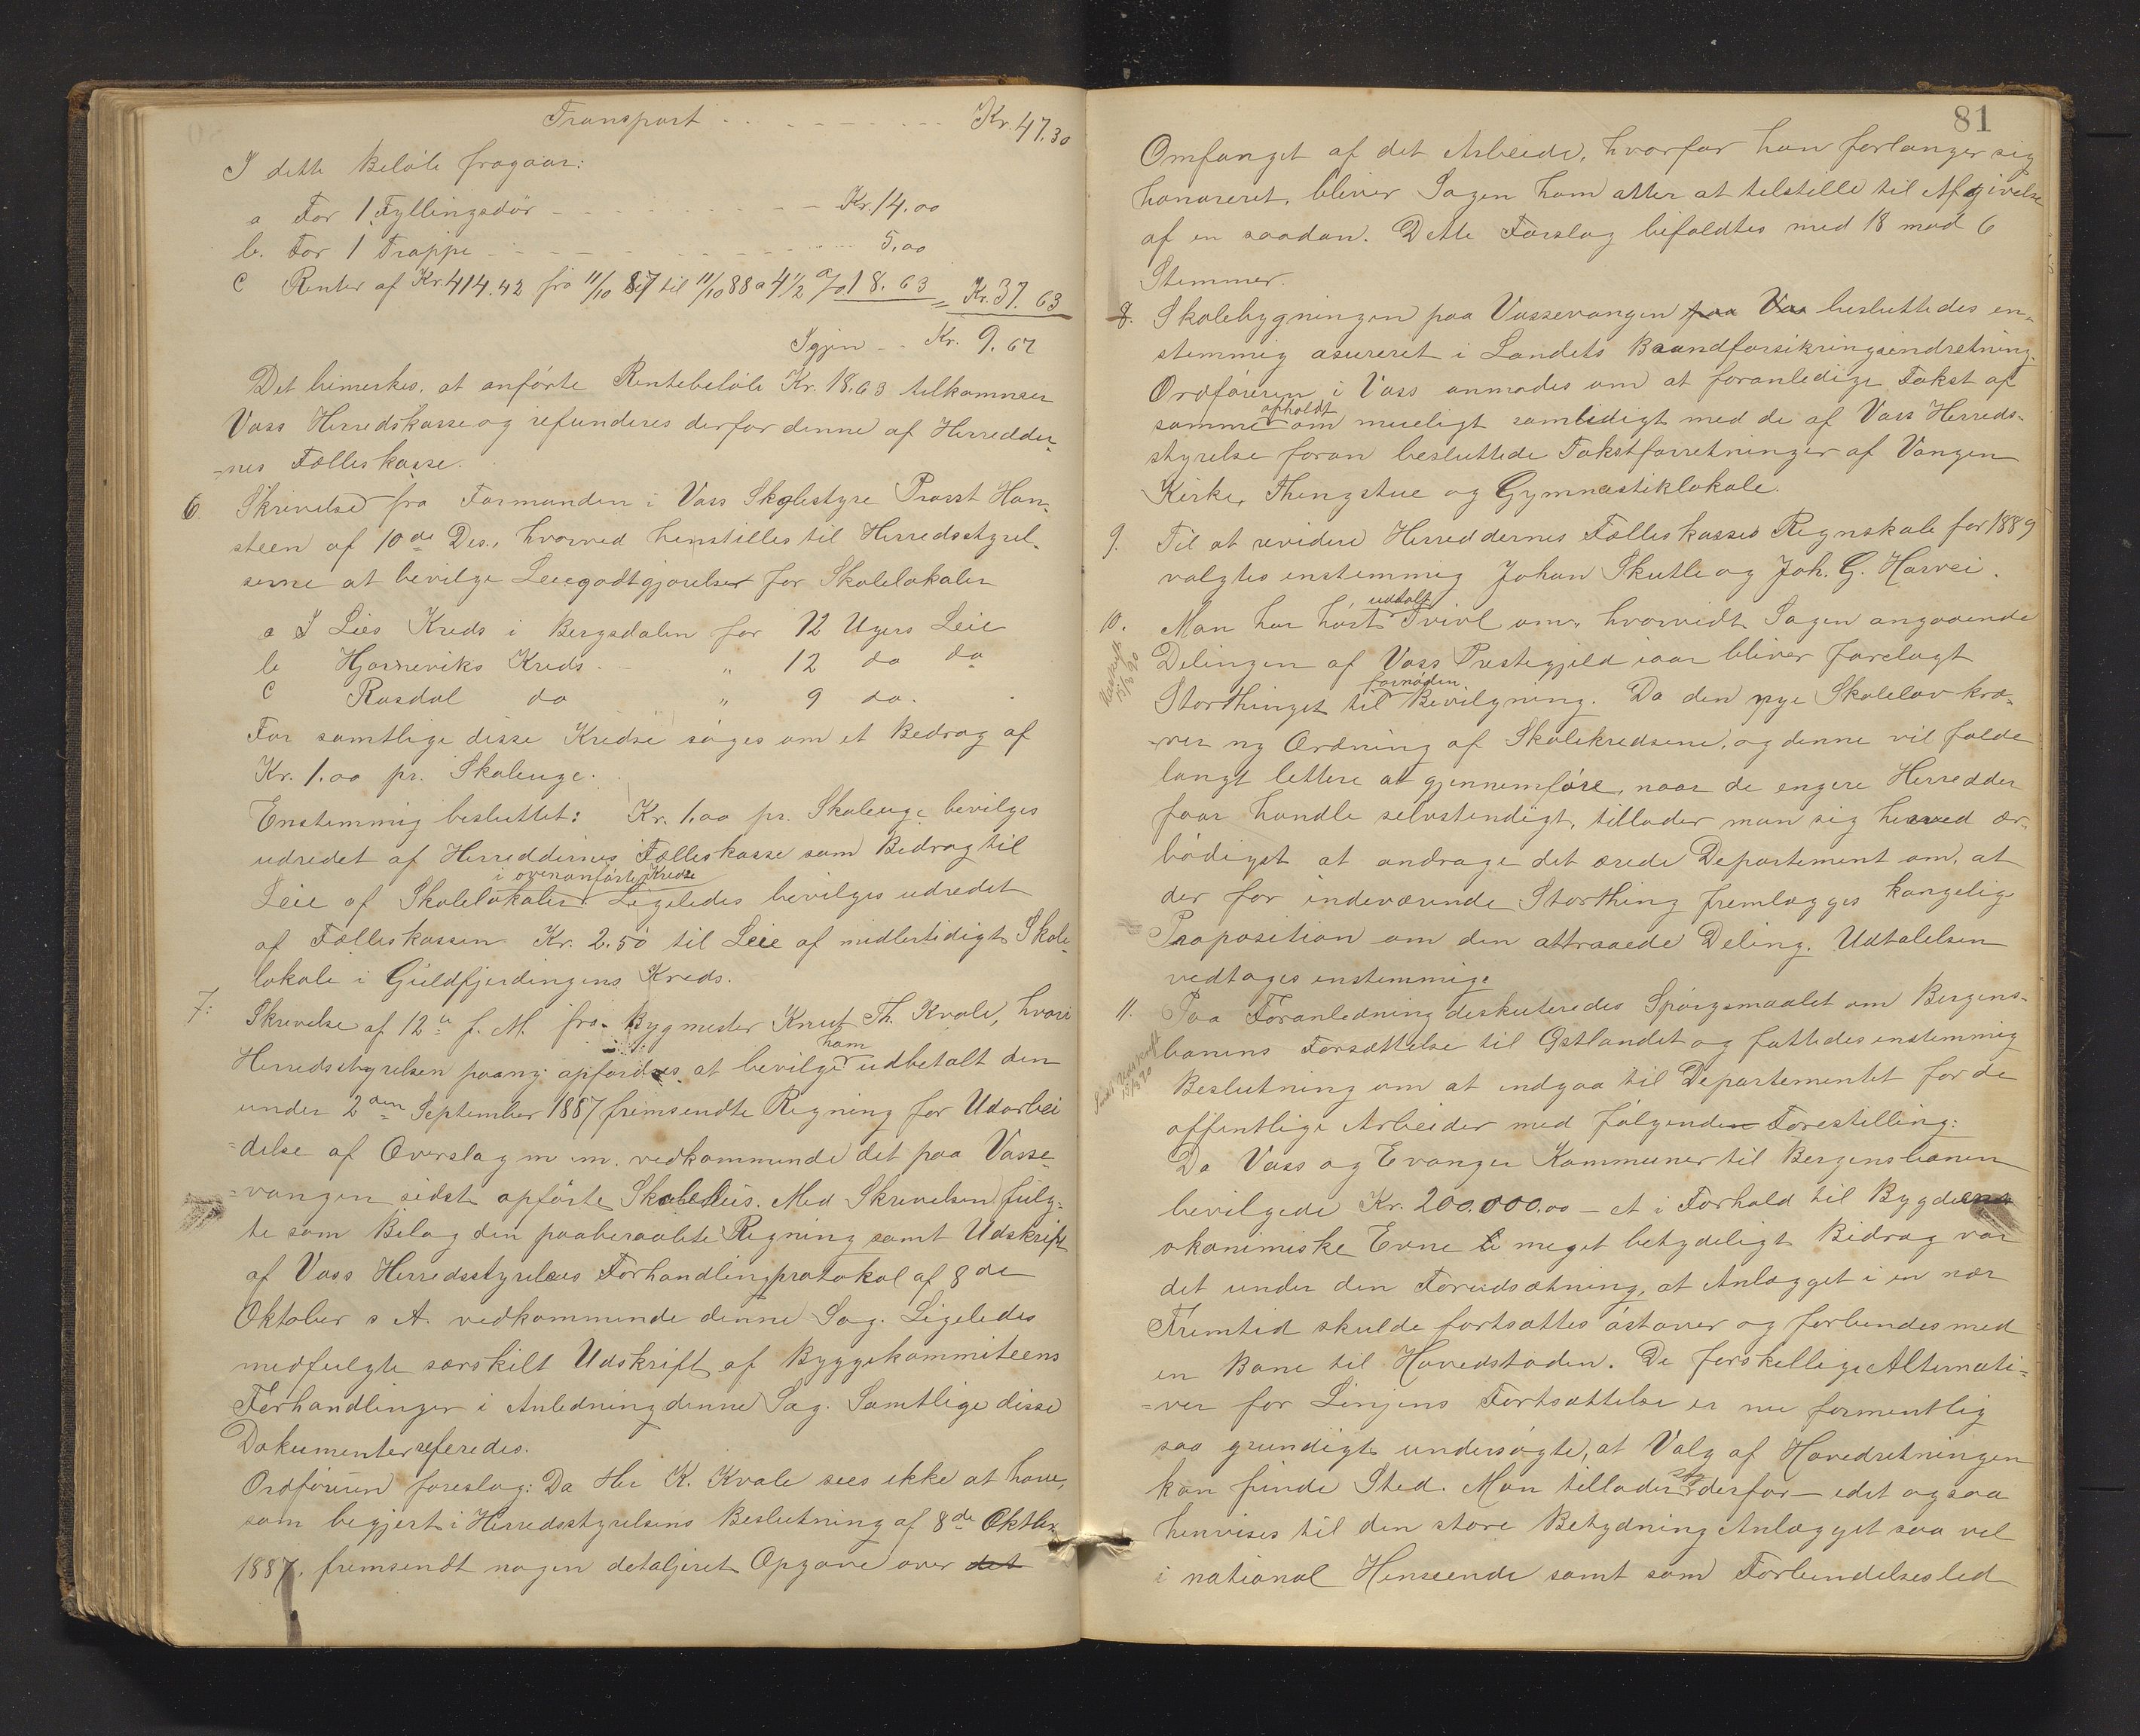 Transport . . - - - - - - - . . . Kr. 47.30
I dette Beløb fragaar:
a For 1 Fyllingsdør - - - - - - - - - Kr. 14.00
b. For 1 Trappe - - - - - - - - - - 5.00
C Renter af Kr. 414.42 fra 11/10 87 til 11/10 88 a 4 1/2 % 18.63 = Kr. 37.63
Igjen - - Kr. 9.67
Det bemerkes, at anførte Rentebeløb Kr. 18.63 tilkommer
Voss Herredskasse og refunderes derfor denne af Herredder-
-nes Fælleskasse.
6. Skrivelse fra Formanden i Voss Skolestyre Provst Han-
steen af 10de Des., hvorved henstilles til Herredsstyrel-
serne at bevilge Leiegodtgjørelser for Skolelokaler
a I Lies Kreds i Bergsdalen for 12 Ugers Leie
b Hjørneviks Kreds - - " 12 do do
C Rasdal do " 9 do. .
For samtlige disse Kredse søges om et Bedrag af
Kr. 1.00 pr. Skoleuge.
Enstemmig besluttet: Kr. 1.00 pr. Skoleuge bevilges
udredet af Herreddernes Fælleskasse som Bidrag til
i ovenanførte Kredse
Leie af Skolelokaler. Ligeledes bevilges udredet
af Fælleskassen Kr. 2.50 til Leie af midlertidigt Skole-
lokale i Guldfjerdingens Kreds.
7. Skrivelse af 12te f. M. fra Bygmester Knut Th. Kvale, hvori
ham
Herredsstyrelsen paany opfordres at bevilge udbetalt den
under 2den September 1887 fremsendte Regning for Udarbei
=delse af Overslag m m. vedkommende det paa Vosse-
=vangen sidst opførte Skolehus. Med Skrivelsen fulg-
te som Bilag den paaberaabte Regning samt Udskrift
af Voss Herredsstyrelses Forhandlingsprotokol af 8de
Oktober s A. vedkommende denne Sag. Ligeledes
medfulgte særskilt Udskrift af Byggekommiteens
Forhandlinger i Anledning denne Sag. Samtlige disse
Dokumenter refereredes.
Ordføreren foreslog: Da Her K. Kvale sees ikke at have,
som begjert i Herredsstyrelsens Beslutning af 8de Oktbr
1887, fremsendt nogen detaljeret Opgave over det
81
Omfanget af det Arbeide, hvorfor han forlanger sig
honoreret, bliver Sagen ham atter at tilstille til Afgivelse
af en saadan. Dette Forslag bifaldtes med 18 mod 6
Stemmer.
8. Skolebygningen paa Vossevangen paa Vos besluttedes en-
stemmig asureret i Landets Brandforsikringsindretning.
Ordføreren i Voss anmodes om at foranledige Takst af
afholdt
samme om mueligt samtidigt med de af Voss Herreds-
styrelse foran besluttede Takstforretninger af Vangen
Kirke, Thingstue og Gymnastiklokale.
9. Til at revidere Herreddernes Fælleskasses Regnskab for 1889
valgtes enstemmig Johan Skutle og Joh. G. Horvei.
udtalt
10. Man har hørt Tvivl om, hvorvidt Sagen angaaende
Udskrift
15/3 90
Delingen af Voss Prestegjeld iaar bliver forelagt
fornøden
Storthinget til Bevilgning. Da den nye Skolelov kræ-
-ver ny Ordning af Skolekredsene, og denne vil falde
langt lettere at gjennemføre, naar de engere Herredder
faar handle selvstendigt, tillader man sig herved ær-
bødigst at andrage det ærede Departement om, at
der for indeværende Storthing fremlægges kongelig
Proposition om den attraaede Deling. Udtalelsen
vedtages enstemmig.
11. Paa Foranledning diskuteredes Spørgsmaalet om Bergens-
Udskrift
15/3 90
banens Forsættelse til Østlandet og fattedes enstemmig
Beslutning om at indgaa til Departementet for de
offentlige Arbeider med følgende Forestilling:
Da Voss og Evanger Kommuner til Bergensbanen
bevilgede Kr. 200.000.00 - et i Forhold til Bygdens
økonimiske Evne meget betydeligt Bidrag var
det under den Forudsætning, at Anlægget i en nær
Fremtid skulde fortsættes østover og forbindes med
en Bane til Hovedstaden. De forskellige Alternati-
=ver for Linjens Fortsættelse er nu formentlig
saa grundigt undersøgte, at Valg af Hovedretningen
sig
kan finde Sted. Man tillader derfor - idet ogsaa
henvises til den store Betydning Anlægget saa vel
i national Henseende samt som Forbindelsesled